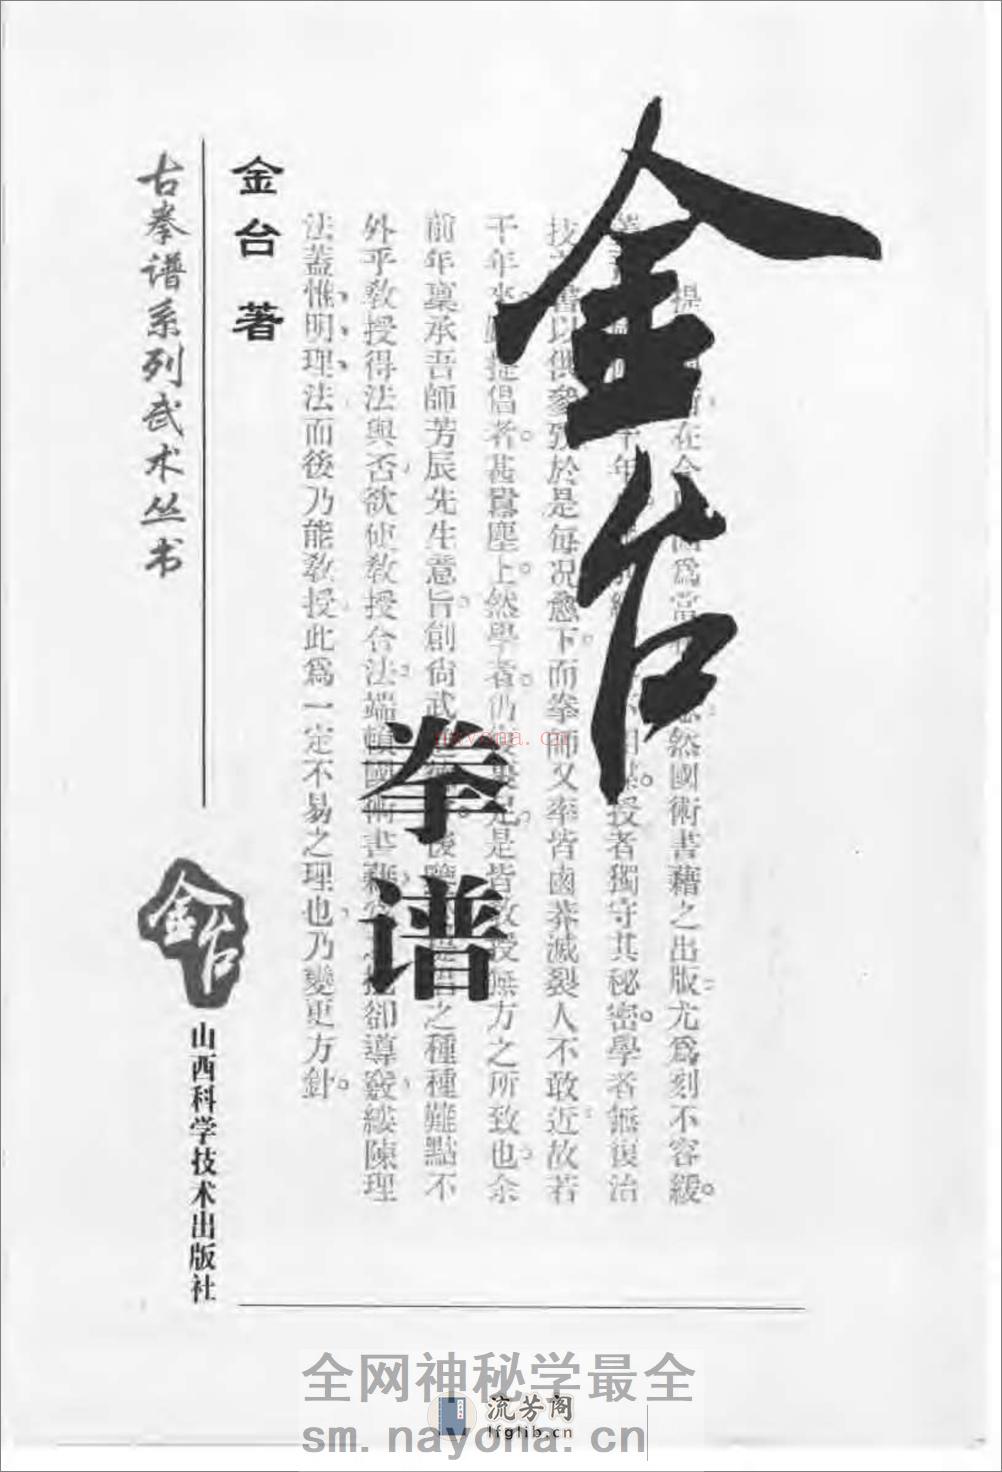 金台
拳谱
金台著
古拳谱系列武术丛书
金台
山西科学技术出版社
在今
為當
然國術書籍之出版尤為刻不容緩。
年
授者獨守其秘密。學者無復治
技
書以供參攷於是每况愈下。而拳而又率皆鹵莽滅裂人不敢近故若
干年來
提倡者。甚囂塵上。然學者。仍
是皆教授無方之所致也。余
前年稟承吾師芳辰先生意旨。創尚武
之種種難點不
外乎教授得法與否欲使教授合法。端賴國術書籍
卻導窾綏陳理
法蓋惟明理法而後乃能教授此爲一定不易之理也乃變更方針。
nayona.cn
全网神秘学最全
流芳阁
lfglib.cn
sm.nayona.cn